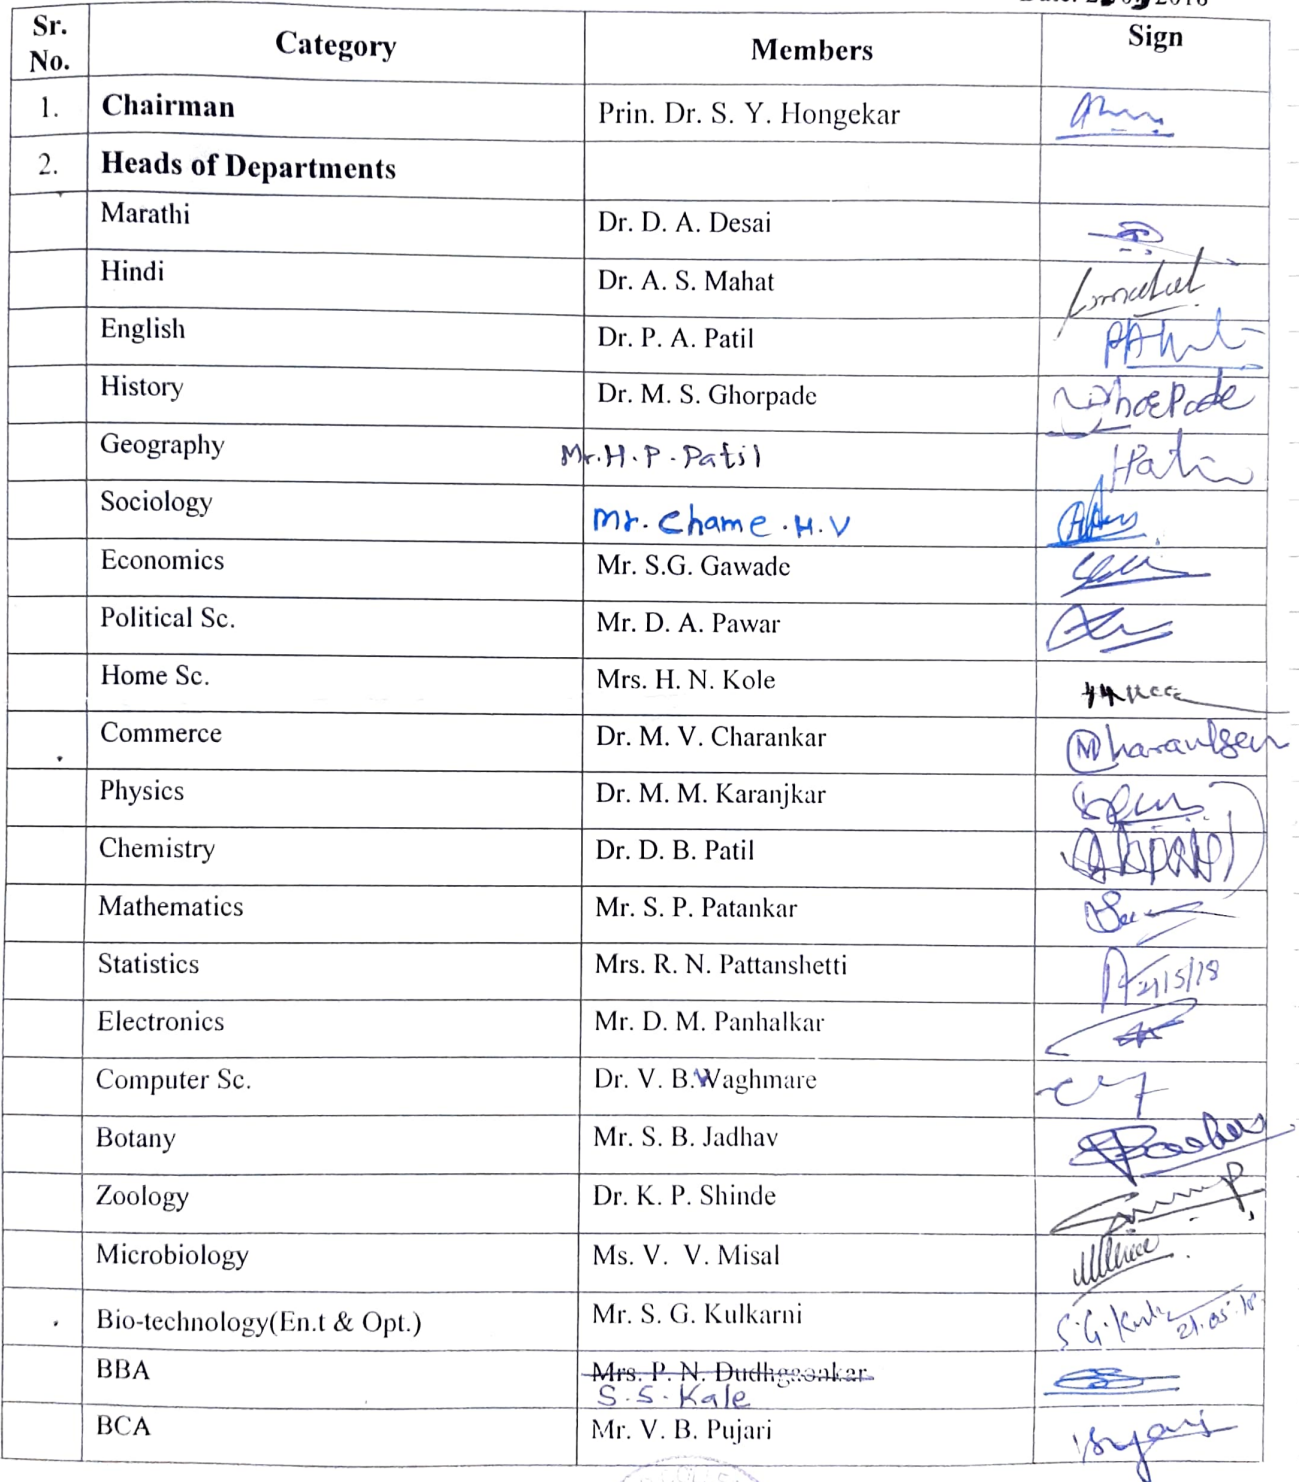 Sr. No. Category Members Sign
1. Chairman Prin. Dr. S. Y. Hongekar
2. Heads of Departments
Marathi Dr. D. A. Desai
Hindi Dr. A. S. Mahat
English Dr. P. A. Patil
History Dr. M. S. Ghorpade
Geography Mr. H. P. Patil
Sociology Mr. Chame . H. V
Economics Mr. S.G. Gawade
Political Sc. Mr. D. A. Pawar
Home Sc. Mrs. H. N. Kole
Commerce Dr. M. V. Charankar
Physics Dr. M. M. Karanjkar
Chemistry Dr. D. B. Patil
Mathematics Mr. S. P. Patankar
Statistics Mrs. R. N. Pattanshetti 21/5/18
Electronics Mr. D. M. Panhalkar
Computer Sc. Dr. V. B. Waghmare
Botany Mr. S. B. Jadhav
Zoology Dr. K. P. Shinde
Microbiology Ms. V. V. Misal
Bio-technology(En.t & Opt.) Mr. S. G. Kulkarni 21.05.18
BBA Mrs. P. N. Dudhgaonkar
S. S. Kale
BCA Mr. V. B. Pujari